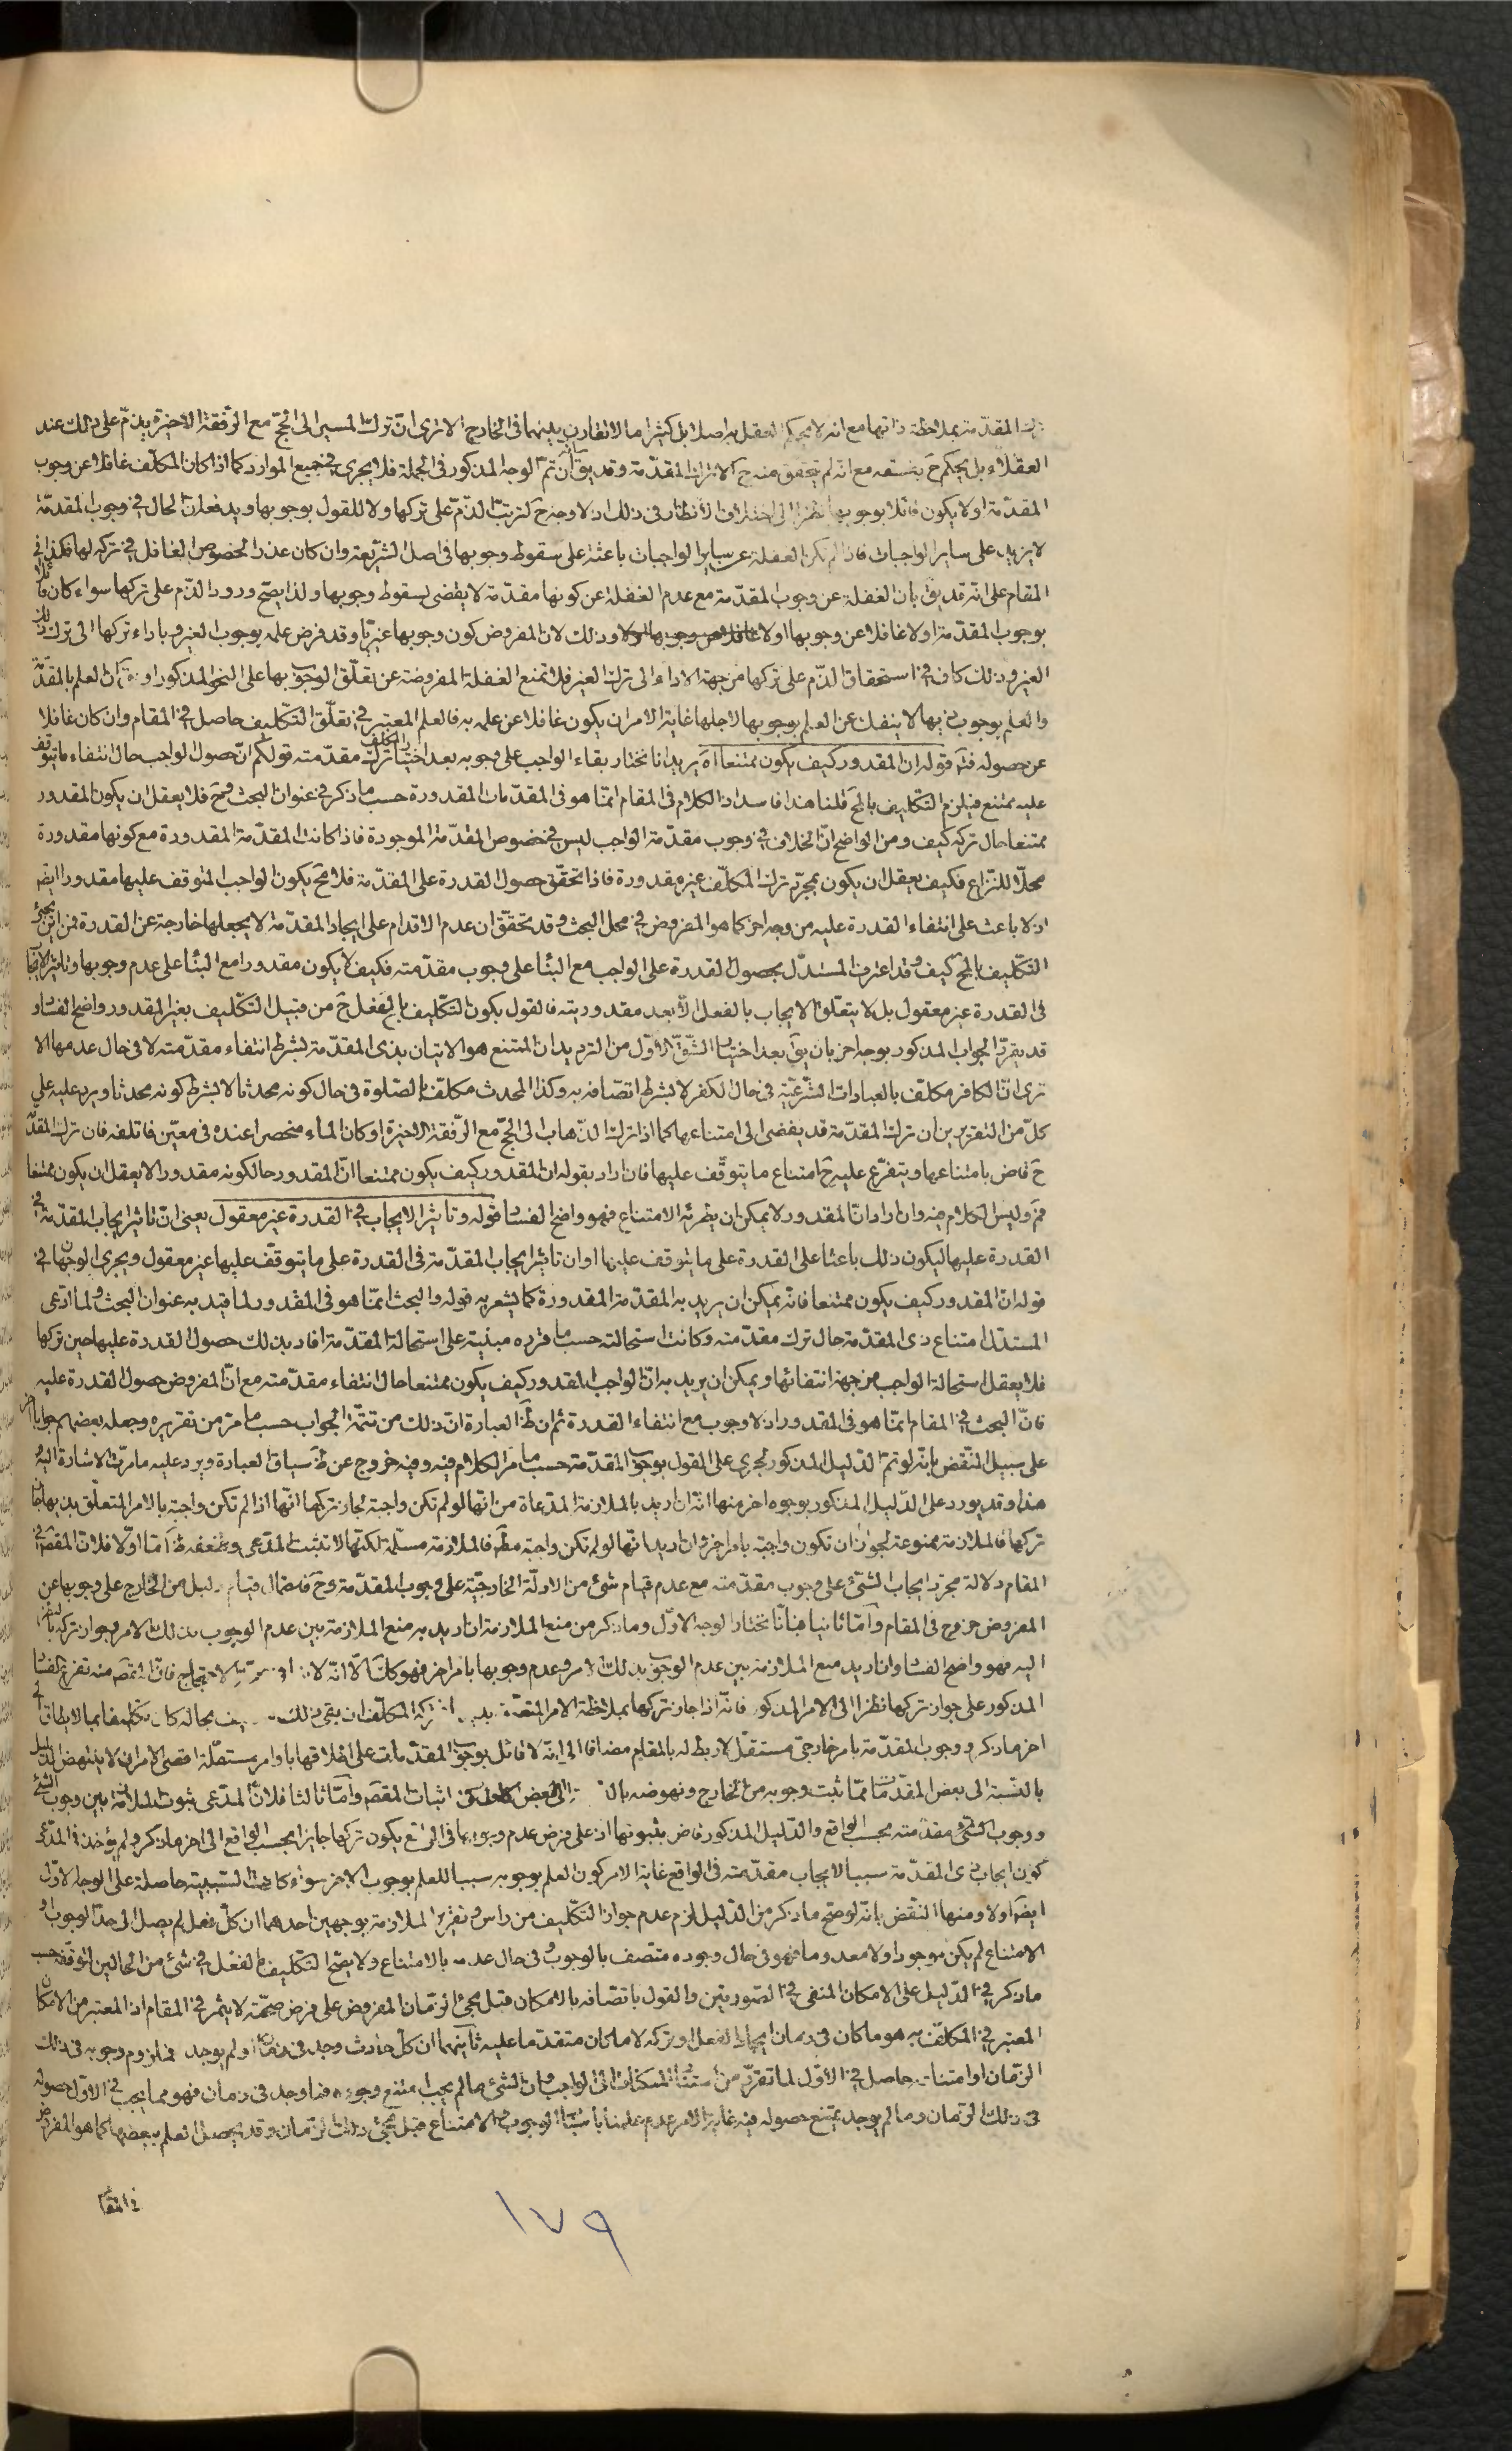 المقدّمة بملاحظة ذاتها مع انه لا يحكم العقل به اصلا بل كثيرا ما لا تقارن بينهما فى الخارج الا ترى انّ ترك المسير الى الحجّ مع الرّفقة الاخيرة يذمّ على ذلك عند
العقلاء بل يحكم ح بفسقه مع انّه لم يتحقق منه ح الا ترك المقدّمة وقد يقٓ ان تمّ الوجه المذكور فى الجملة فلا يجرى فى جميع الموارد كما اذا كان المكلّف غافلا عن وجوب
المقدّمة او لا يكون قائلا بوجوبها نظرا الى اختلاف الأنظار فى ذلك اذ لا وجه ح لترتّب الذّم على تركها ولا للقول بوجوبها ويدفعه انّ الحال فى وجوب المقدّمة
لا يزيد على ساير الواجبات فاذا لم تكن الغفلة عن ساير الواجبات باعثة على سقوط وجوبها فى اصل الشريعة وان كان عذرا لخصوص الغافل فى تركه لها فكذا فى
المقام على انّه قد يقٓ بان الغفلة عن وجوب المقدّمة مع عدم الغفلة عن كونها مقدّمة لا يقضى بسقوط وجوبها ولذا يصحّ ورود الذّم على تركها سواء كان قائلا
بوجوب المقدّمة او لا غافلا عن وجوبها او لا وذلك لانّ المفروض كون وجوبها غيريّا وقد فرض علمه بوجوب الغير وباداء تركها الى ترك ذلك
الغير وذلك كاف فى استحقاق الذّم على تركها من جهة الاداء الى ترك الغير فلا تمنع الغفلة المفروضة عن تعلّق الوجوب بها على النحو المذكور انّ العلم بالمقدّمة
والعلم بوجوب ذيها لا ينفك عن العلم بوجوبها لاجلها غاية الامر ان يكون غافلا عن علمه به فالعلم المعتبر فى تعلّق التّكليف حاصل فى المقام وان كان غافلا
عن حصوله فتٓم قوله ان المقدور كيف يكون ممتنعا اهٓ يريد انا نختار بقاء الواجب على وجوبه بعد اختيار المكلّف ترك مقدّمته قولكم انّ حصول الواجب حال انتفاء ما يتوقف
عليه ممتنع فيلزم التّكليف بالمحٓ قلنا هذا فاسد اذ الكلام فى المقام انمّا هو فى المقدّمات المقدورة حسب ما ذكر فى عنوان البحث وح فلا يعقل ان يكون المقدور
ممتنعا حال تركه كيف ومن الواضح انّ الخلاف فى وجوب مقدّمة الواجب ليس فى خصوص المقدّمة الموجودة فاذا كانت المقدّمة المقدورة مع كونها مقدورة
محلّا للنّزاع فكيف يعقل ان يكون بمجرّد ترك المكلّف غير مقدورة فاذا تحقّق حصول القدرة على المقدّمة فلا مح يكون الواجب المتوقف عليها مقدورا ايضٓ
اذ لا باعث على انتفاء القدرة عليه من وجه اخر كما هو المفروض فى محل البحث وقد تحقّق ان عدم الاقدام على ايجاد المقدّمة لا يجعلها خارجة عن القدرة فمن اين يجئ
التّكليف بالمحٓ كيف وقد اعترف المستدلّ بحصول القدرة على الواجب مع البناء على وجوب مقدّمته فكيف لا يكون مقدورا مع البناء على عدم وجوبها وتاثير الايجاب
فى القدرة غير معقول بل لا يتعلّق الايجاب بالفعل الّا بعد مقدوريته فالقول بكون التّكليف بالفعل ح من قبيل التّكليف بغير المقدور واضح الفساد و
قد يقرّر الجواب المذكور بوجه اخر بان يقٓ بعد اختيار الشّقّ الاوّل من الترديد ان الممتنع هو الاتيان بذى المقدّمة بشرط انتفاء مقدّمته لا فى حال عدمها الا
ترى انّ الكافر مكلّف بالعبادات الشّرعيّة فى حال الكفر لا بشرط اتصّافه به وكذا المحدث مكلّف بالصّلوة فى حال كونه محدثا لا بشرط كونه محدثا ويرد عليه على
كلّ من التقريرين ان ترك المقدّمة قد يفضى الى امتناعها كما اذا ترك الذّهاب الى الحجّ مع الرّفقة الاخيرة او كان الماء منحصرا عنده فى معيّن فاتلفه فان ترك المقدّمة
ح قاض بامتناعها ويتفرّع عليه ح امتناع ما يتوقّف عليها فان اراد بقوله ان المقدور كيف يكون ممتنعا انّ المقدور حال كونه مقدورا لا يعقل ان يكون ممتنعا
فمٓ وليس الكلام فيه وان اراد انّ المقدور لا يمكن ان يطرئه الامتناع فهو واضح الفساد قوله وتاثير الايجاب فى القدرة غير معقول يعنى انّ تاثير ايجاب المقدّمة فى
القدرة عليها ليكون ذلك باعثا على القدرة على ما يتوقف عليها او ان تاثير ايجاب المقدّمة فى القدرة على ما يتوقّف عليها غير معقول ويجرى الوجهان فى
قوله انّ المقدور كيف يكون ممتنعا فانه يمكن ان يريد به المقدّمة المقدورة كما يشعر به قوله والبحث انمّا هو فى المقدور لما قيّد به عنوان البحث ولما ادّعى
المستدلّ امتناع ذى المقدّمة حال ترك مقدّمته وكانت استحالته حسب ما قرّره مبنيّة على استحالة المقدّمة افاد بذلك حصول القدرة عليها حين تركها
فلا يعقل استحالة الواجب من جهة انتفائها ويمكن ان يريد به انّ الواجب المقدور كيف يكون ممتنعا حال انتفاء مقدّمته مع انّ المفروض حصول القدرة عليه
فانّ البحث فى المقام انمّا هو فى المقدور اذ لا وجوب مع انتفاء القدرة ثم ان ظٓ العبارة انّ ذلك من تتمّة الجواب حسب ما مرّ من تقريره وجعله بعضهم جوابا اخر
على سبيل النّقض بانّه لو تمّ الدّليل المذكور لجرى على القول بوجوب المقدّمة حسب ما مرّ الكلام فيه وفيه خروج عن ظٓ سياق العبارة ويرد عليه ما مرّت الاشارة اليه
هذا وقد يورد على الدّليل المذكور بوجوه اخر منها انّه ان اريد بالملازمة المدّعاة من انّها لو لم تكن واجبة لجاز تركها انّها اذا لم تكن واجبة بالامر المتعلّق بذيها جاز
تركها فالملازمة ممنوعة لجواز ان تكون واجبة بامر اخر وان اريد انّها لو لم تكن واجبة مطٓ فالملازمة مسلّمة لكنّها لا تثبت المدّعى وضعفه ظٓ امّا اوّلا فلانّ المقصٓ فى
المقام دلالة مجرّد ايجاب الشّئ على وجوب مقدّمته مع عدم قيام شئ من الادلّة الخارجيّة على وجوب المقدّمة وح فاحتمال قيام دليل من الخارج على وجوبها عن
المفروض خروج فى المقام وامّا ثانيا فبانّا نختار الوجه الاوّل وما ذكر من منع الملازمة ان اريد به منع الملازمة بين عدم الوجوب بذلك الامر وجواز تركه بالنظر
اليه فهو واضح الفساد وان اريد منع الملازمة بين عدم الوجوب بذلك الامر وعدم وجوبها بامر اخر فهو كذلك الّا انّه الاحتجاج فانّ المقصٓ منه تفريع الفساد
المذكور على جواز تركها نظرا الى الامر المذكور فانّه اذا جاز تركها بملاحظة الامر المتعلّق تركه المكلّف ان بقى ذلك بحاله كان تكليفا بما لا يطاق الى
اخر ما ذكر ووجوب المقدّمة بامر خارجىّ مستقلّ لا ربط له بالمقام مضافا الى انّه لا قائل بوجوب المقدّمات على اطلاقها باوامر مستقلّة اقصى الامر ان لا ينتهض الدّليل
بالنّسبة الى بعض المقدّمات ممّا ثبت وجوبه من الخارج ونهوضه الى البعض اثبات المقصٓ وامّا ثالثا فلانّ المدّعى ثبوت الملازمة بين وجوب الشئ
ووجوب مقدّمته بحسب الواقع والدّليل المذكور قاض بثبوتها اذ على فرض عدم وجوبها فى الواقع يكون تركها جايزا بحسب الواقع الى اخر ما ذكر ولم يؤخذ فى المدّعى
كون ايجاب ذى المقدّمة سببا لايجاب مقدّمته فى الواقع غاية الامر كون العلم بوجوبه سببا للعلم بوجوب الاخر سواء كانت السّببيّة حاصلة على الوجه الاوّل
ايضٓ او لا ومنها النّقض بانّه لو صحّ ما ذكر من الدّليل لزم عدم جواز التّكليف من راس وتقرير الملازمة بوجهين احدهما ان كلّ فعل لم يصل الى حدّ الوجوب او
الامتناع لم يكن موجودا ولا معدوما فهو فى حال وجوده متّصف بالوجوب وفى حال عدمه بالامتناع ولا يصحّ التّكليف بالفعل فى شئ من الحالين لتوقّفه حسب
ما ذكر فى الدّليل على الامكان المنفى فى الصّورتين والقول باتصّافه بالامكان قبل مجئ الزّمان المفروض على فرض صحّته لا يثمر فى المقام اذ المعتبر من الامكان
المعتبر فى المكلّف به هو ما كان فى زمان ايجاد الفعل او تركه لا ما كان متقدّما عليه ثانيهما ان كلّ حادث وجد فى زمان او لم يوجد فلزوم وجوبه فى ذلك
الزّمان او امتناعه حاصل فى الاوّل لما تقرّر من استناد الممكنات الى الواجب وان الشئ ما لم يجب امتنع وجوده فما وجد فى زمان فهو مما يجب فى الاوّل حصوله
فى ذلك الزّمان وما لم يوجد يمتنع حصوله فيه غاية الامر عدم علمنا باسباب الوجوب والامتناع قبل مجئ ذلك الزّمان وقد يحصل العلم ببعضها كما هو المفروض
فى المقام
١٧٩